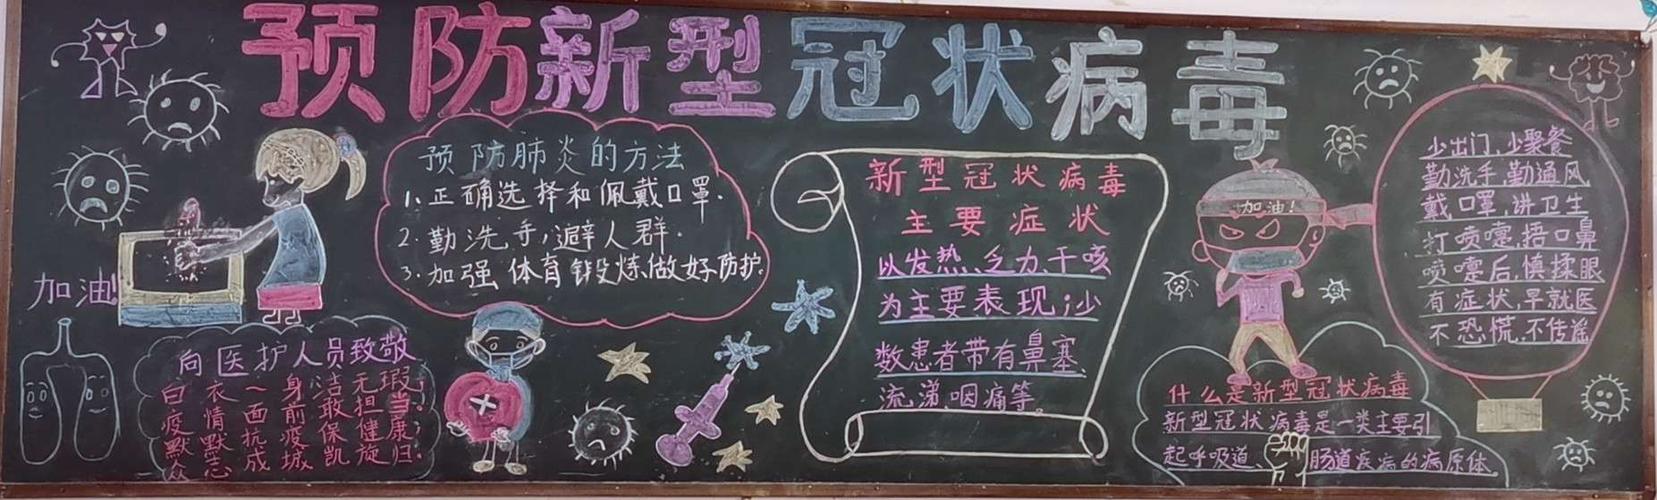 预防新型冠状病毒
加油!
预防肺炎的方法
1.正确选择和佩戴口罩.
2.勤洗手,避人群.
3.加强体育锻炼做好防护.
向医护人员致敬
白衣一身洁无瑕;
疫情面前敢担当;
默默抗疫保健康;
众志成城凯旋归.
新型冠状病毒
主要症状
以发热、乏力、干咳
为主要表现;少
数患者带有鼻塞、
流涕、咽痛等。
加油!
什么是新型冠状病毒
新型冠状病毒是一类主要引
起呼吸道、肠道疾病的病原体.
少出门,少聚餐
勤洗手,勤通风
戴口罩,讲卫生
打喷嚏,捂口鼻
喷嚏后,慎揉眼
有症状,早就医
不恐慌,不传谣